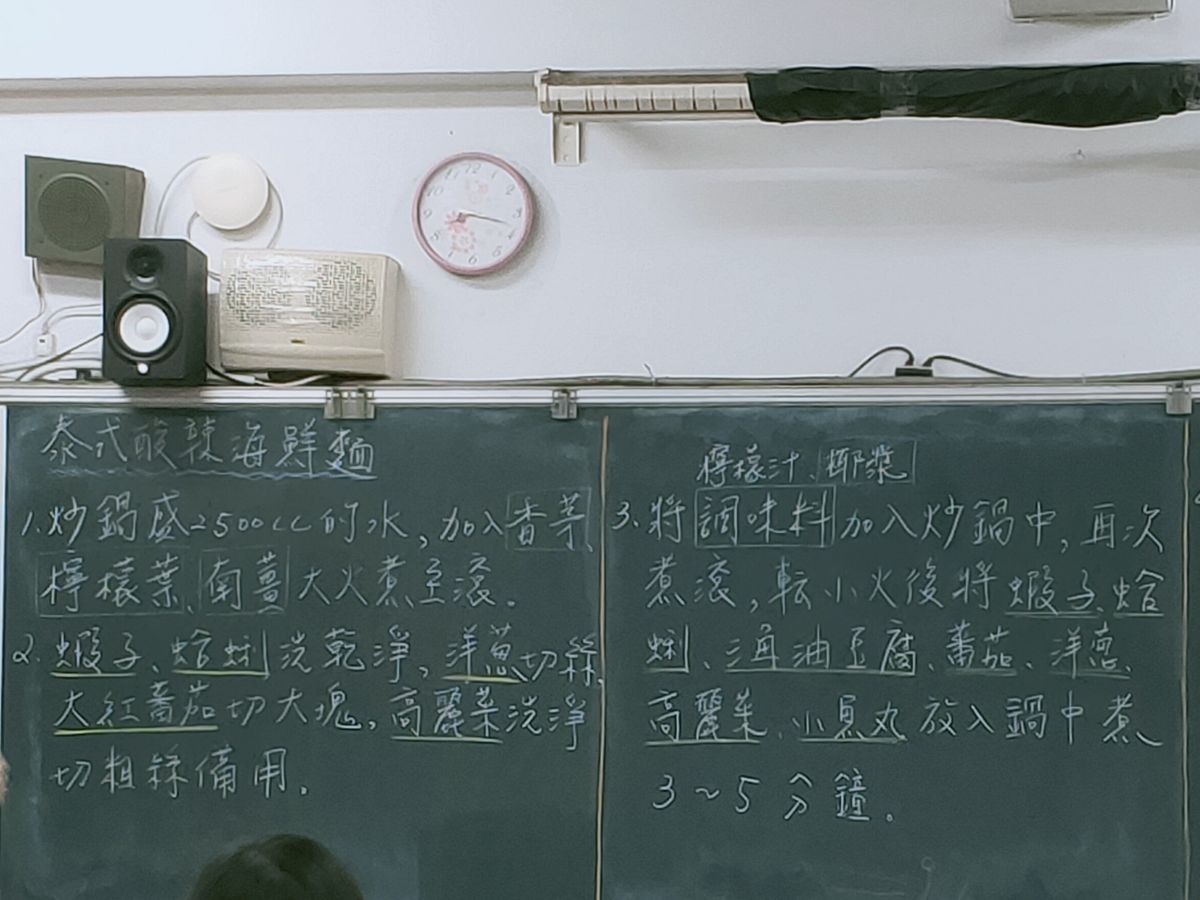 泰式酸辣海鮮麵
1.炒鍋盛2500cc的水,加入香茅、
檸檬葉、南薑大火煮至滾。
2.蝦子、蛤蜊洗乾淨,洋蔥切絲、
大紅蕃茄切大塊,高麗菜洗淨
切粗絲備用。
檸檬汁、椰漿
3.將調味料加入炒鍋中,再次
煮滾,転小火後將蝦子、蛤
蜊、三角油豆腐、蕃茄、洋蔥、
高麗菜、小魚丸放入鍋中煮
3~5分鐘。
12
1
2
3
4
5
6
7
8
9
10
11